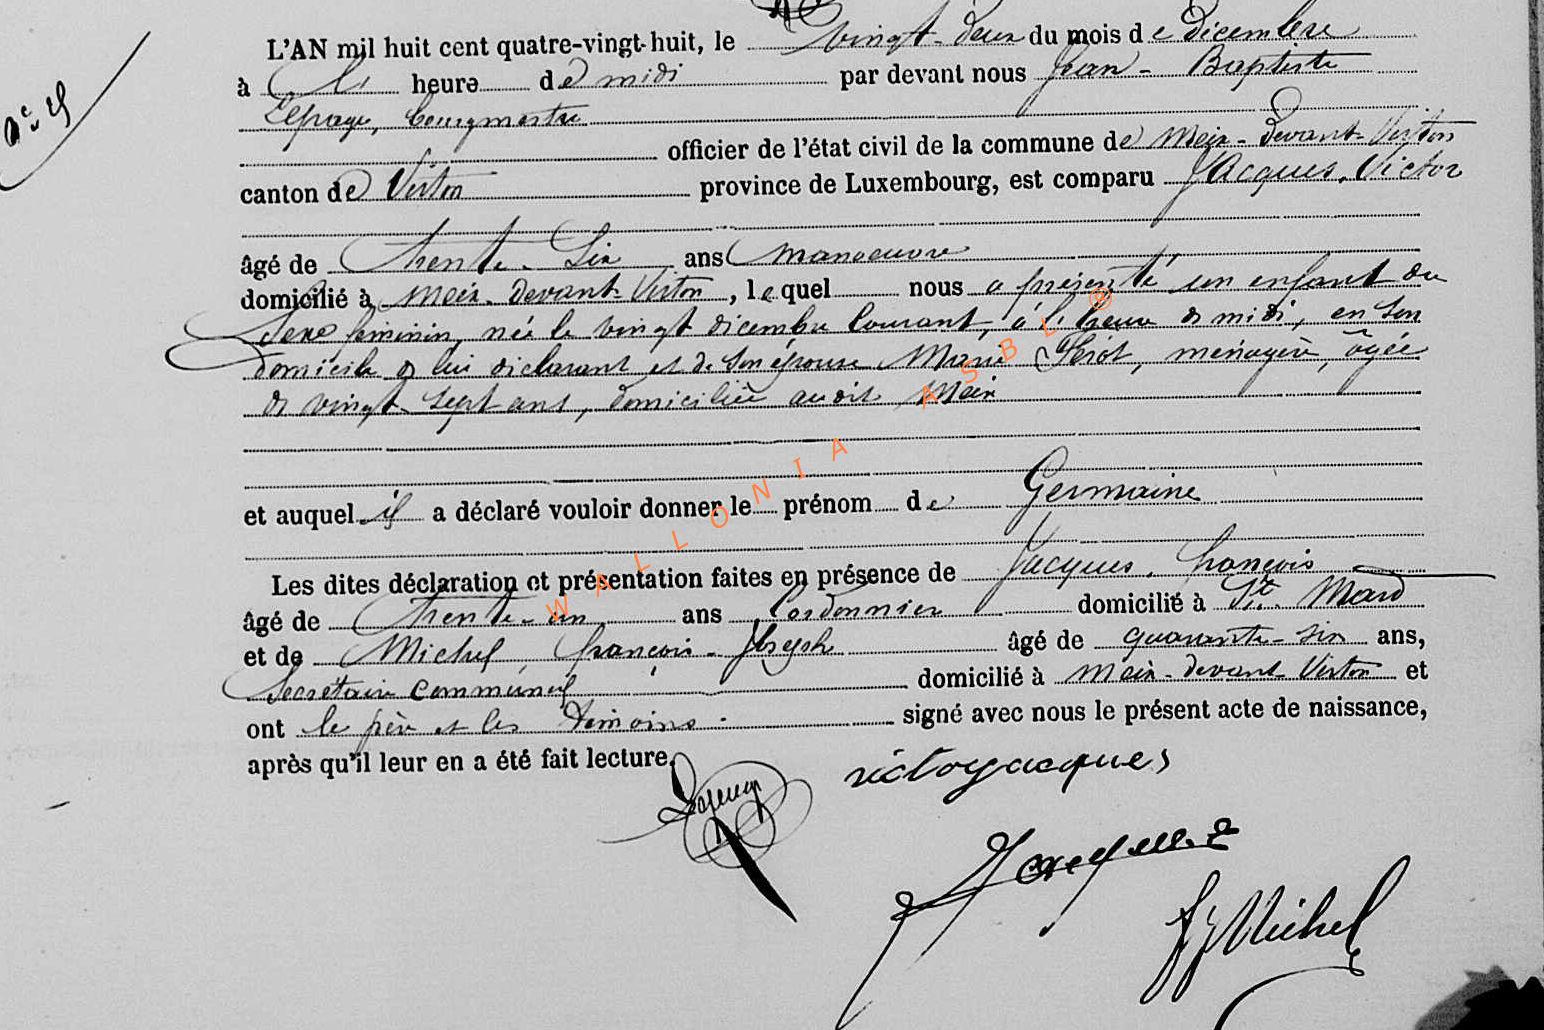 L'AN mil huit cent quatre-vingt-huit, le vingt-deux du mois de décembre
à heure de midi par devant nous Jean-Baptiste
Lepage, bourgmestre
officier de l'état civil de la commune de Meix-devant-Virton
canton de Virton province de Luxembourg, est comparu Jacques, Victor
âgé de trente-six ans manoeuvre
domicilié à Meix-devant-Virton, lequel nous a présenté un enfant du
sexe féminin, née le vingt décembre courant, à heure de midi, en son
domicile de lui déclarant et de son épouse Marie, ménagère, âgée
de vingt-sept ans, domiciliée audit Meix
et auquel il a déclaré vouloir donner le prénom de Germaine
Les dites déclaration et présentation faites en présence de Jacques, François
âgé de trente-un ans Cordonnier domicilié à St. Mard
et de Michel, François-Joseph âgé de quarante-six ans,
Secrétaire communal domicilié à Meix-devant-Virton et
ont le père et les témoins signé avec nous le présent acte de naissance,
après qu'il leur en a été fait lecture.
victor jacques
Jacques
FJ Michel
WALLONIA ASBL @